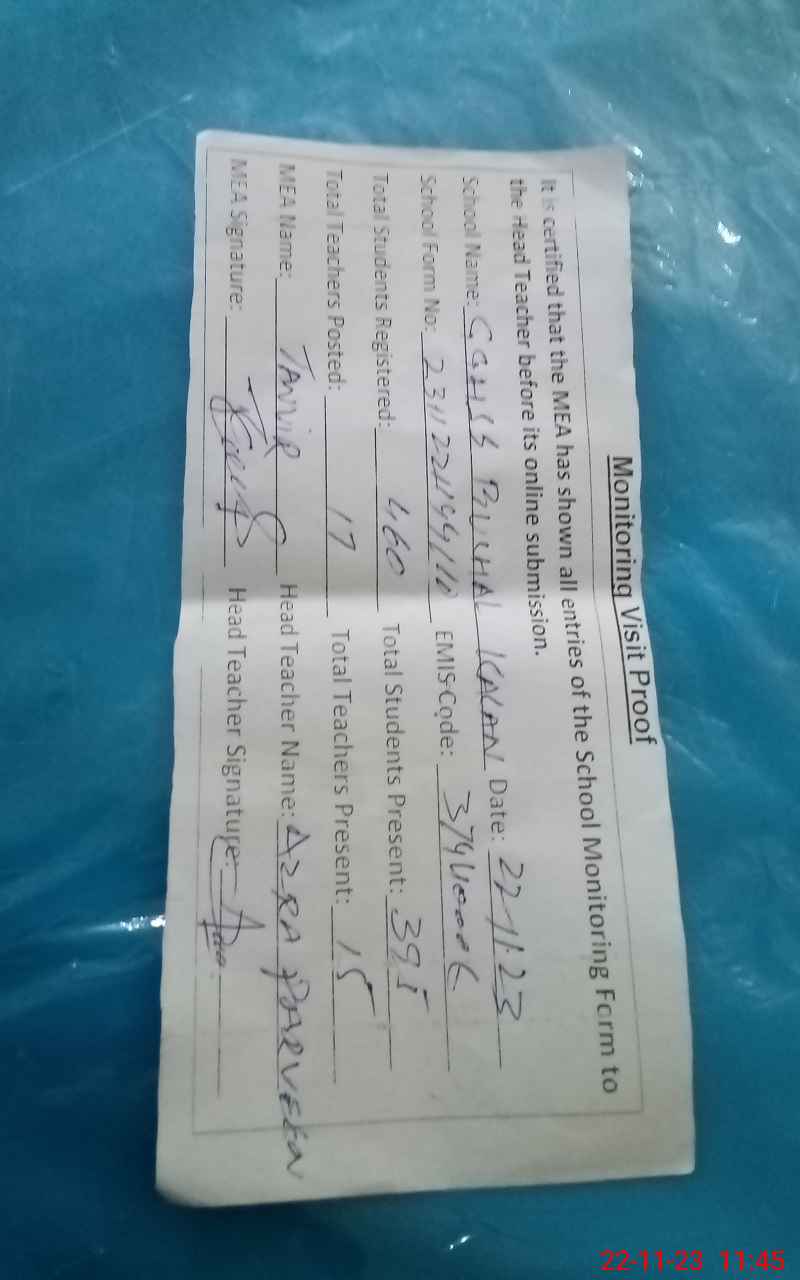 Monitoring Visit Proof
It is certified that the MEA has shown all entries of the School Monitoring Form to
the Head Teacher before its online submission.
School Name: GGHSS BUCHAL KALAN Date: 22-11-23
School Form No: EMIS Code:
Total Students Registered: 460 Total Students Present: 395
Total Teachers Posted: 17 Total Teachers Present: 15
MEA Name: TANVIR Head Teacher Name: AZRA PARVEEN
MEA Signature: Head Teacher Signature:
22-11-23 11:45